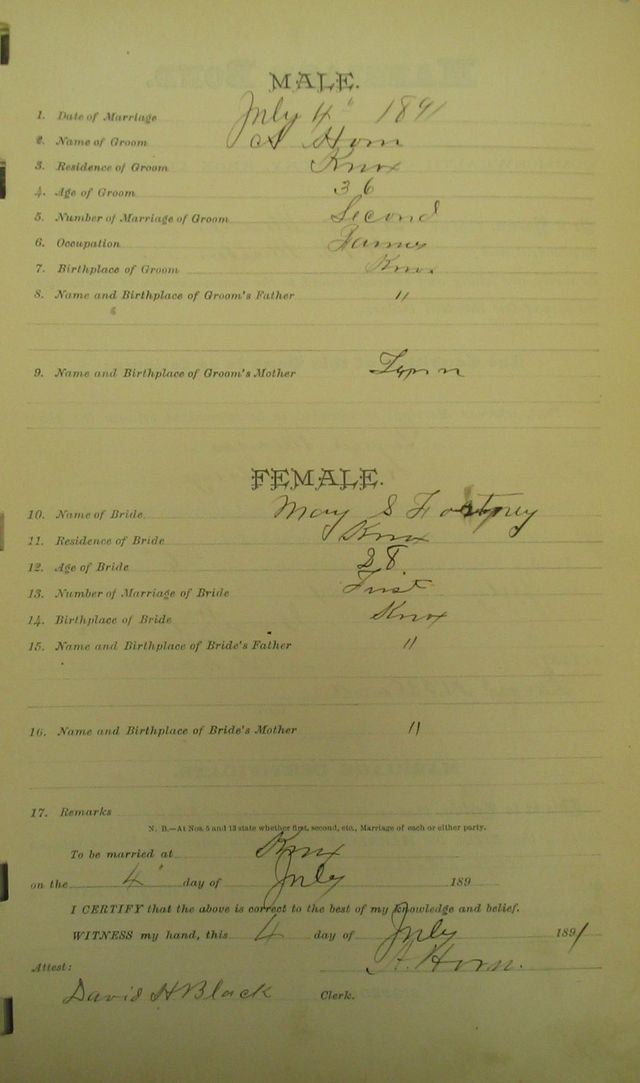 MALE.
1. Date of Marriage July 4" 1891
2. Name of Groom A Horn
3. Residence of Groom Knox
4. Age of Groom 36
5. Number of Marriage of Groom Second
6. Occupation Farmer
7. Birthplace of Groom Knox
8. Name and Birthplace of Groom's Father "
9. Name and Birthplace of Groom's Mother
FEMALE.
10. Name of Bride. May S Fortney
11. Residence of Bride Knox
12. Age of Bride 28.
13. Number of Marriage of Bride First
14. Birthplace of Bride Knox
15. Name and Birthplace of Bride's Father "
16. Name and Birthplace of Bride's Mother "
17. Remarks
N. B.—At Nos. 5 and 13 state whether first, second, etc., Marriage of each or either party.
To be married at Knox
on the 4" day of July 189
I CERTIFY that the above is correct to the best of my knowledge and belief.
WITNESS my hand, this 4 day of July 1891
Attest: A. Horn.
David H Black Clerk.